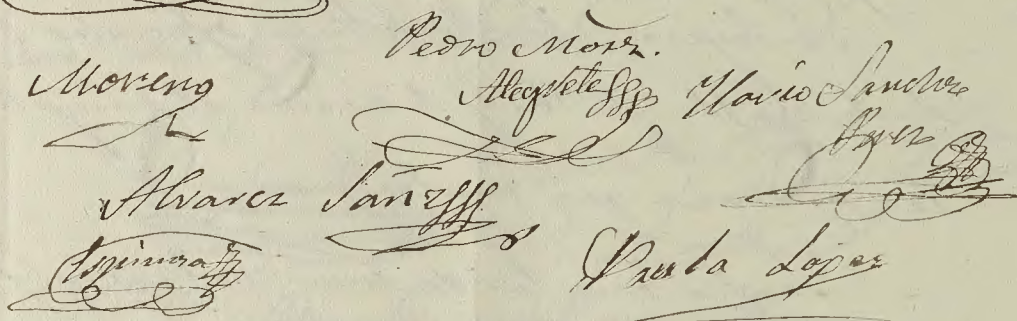 Moreno
Pedro Mõrz.
Alegrete
Ylario Sanchez
Perez
Alvarez
Sañz
Espinosa
Lopez